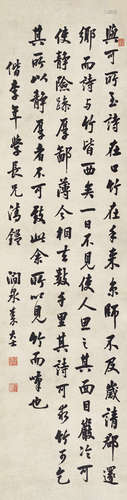 與可所至詩在口竹在手來京師不及歲請郡還
鄉而詩與竹皆西矣一日不見使人思之其面目嚴冷可
使靜險躁厚鄙薄今相去數千里其詩可求竹可乞
其所以靜厚者不可致此余所以見竹而嘆也
年學長兄清鑒